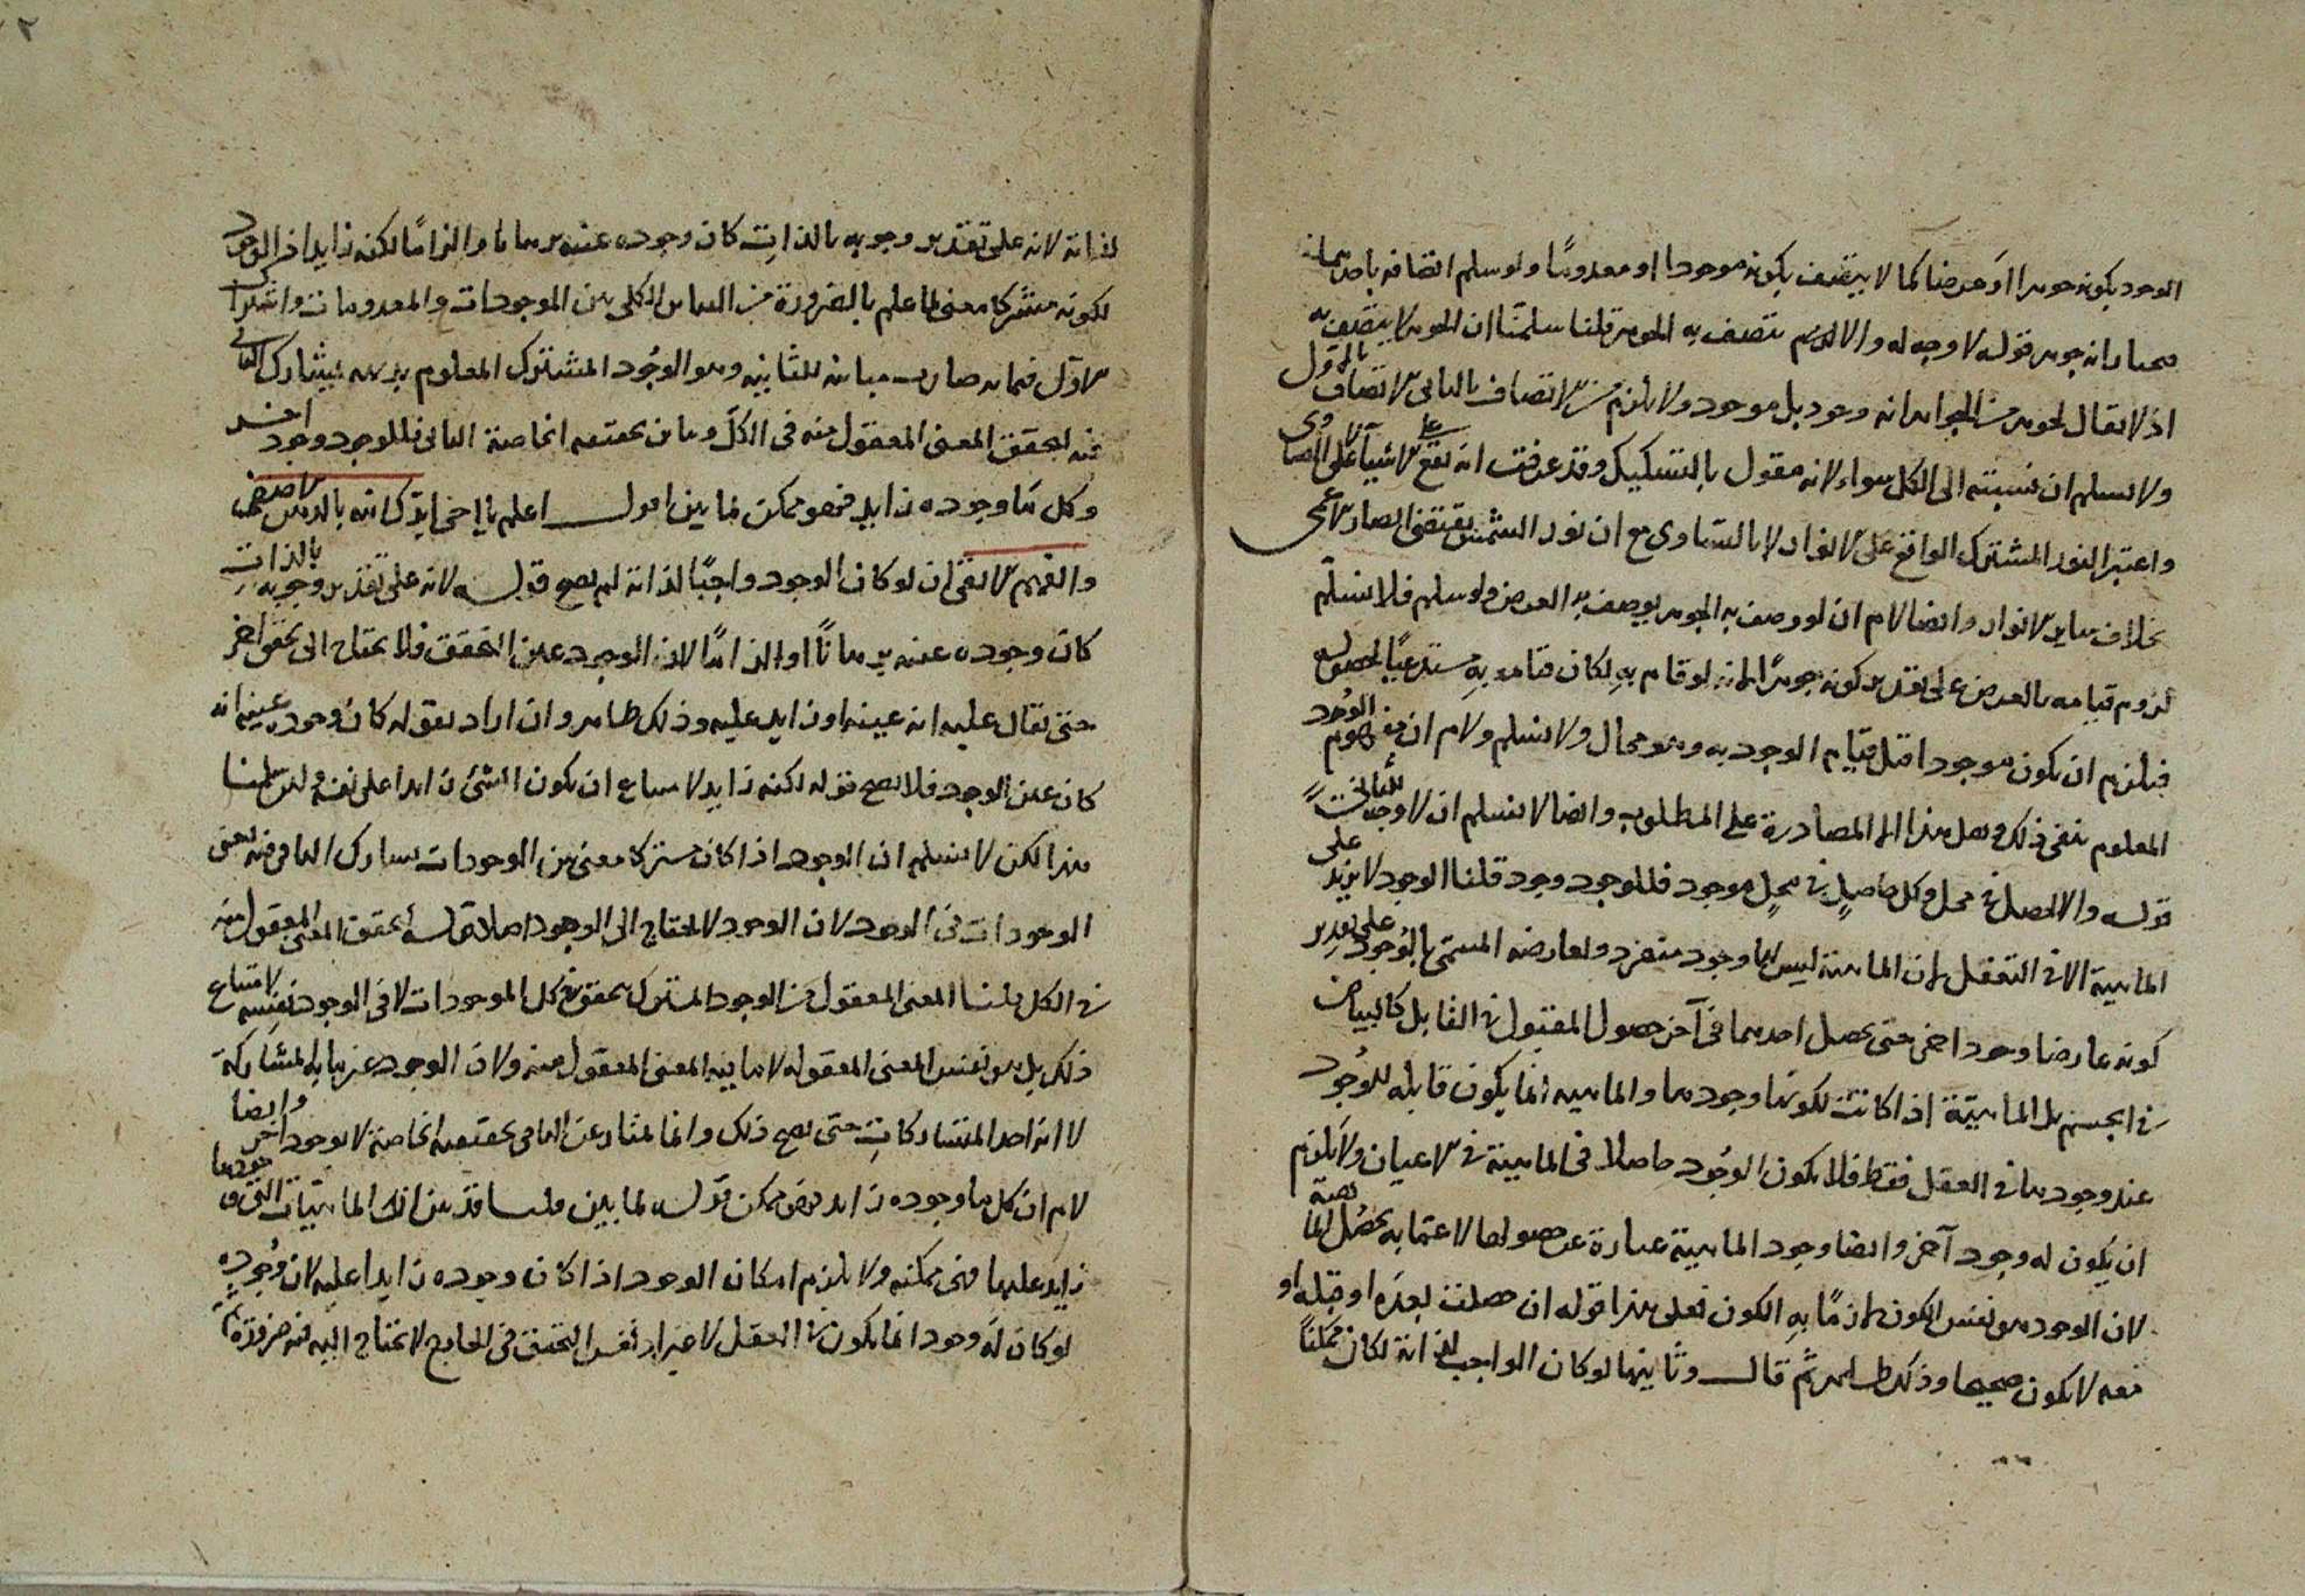 الوجود بكونه جوهرا او عرضا كما لا يتصف بكونه موجودا او معدومًا ولو سلم اتصافه باحدهما
جوهر قوله لا وجه له والا لم يتصف به الجوهر قلنا سلمنا ان الجوهر لا يتصف به
اذ لا يقال لجوهر من الجواهر انه وجود بل موجود ولا يلزم من الاتصاف بالثاني الاتصاف بالاول
ولا نسلم ان نسبته الى الكل سواء لانه مقول بالتشكيك وقد عرفت انه يقع على الاشياء لا على التساوي
واعتبر النور المشترك الواقع على الانوار لا بالتساوي مع ان نور الشمس يقتضي ابصار الاعمى
بخلاف ساير الانوار وايضا لا م ان لو وصف به الجوهر يوصف به العرض ولو سلم فلا نسلم
لزوم قيامه بالعرض على تقدير كونه جوهرًا لو قام به لكان قيامه به مستدعيًا لحصوله
فيلزم ان يكون موجودا قبل قيام الوجود به وهو محال ولا نسلم ولا م ان مفهوم الوجود
المعلوم ينفي ذلك وهل هذا الا المصادرة على المطلوب وايضا لا نسلم ان لا وجه للثاني
قوله والا لحصل في محل وكل حاصل في محل موجود فللوجود وجود قلنا الوجود لا يزيد على
الماهية الا في التعقل لان الماهية ليس لها وجود منفرد ولعارضه المسمى بالوجود على تقدير
كونه عارضا وجود اخر حتى يحصل احدهما في آخر حصول المقبول في القابل كالبياض
في الجسم بل الماهية اذا كانت فكونها وجودها والماهيه انما يكون قابله للوجود
عند وجودها في العقل فقط فلا يكون الوجود حاصلا في الماهية في الاعيان ولا يلزم
ان يكون له وجود آخر وايضا وجود الماهية عبارة عن حصولها لا عما به يحصل الماهية
لان الوجود هو نفس الكون لان ما به الكون فعلى هذا قوله ان حصلت بعده او قبله او
معه لا يكون صحيحا وذلك ظاهر ثم قال وثانيها لو كان الواجب لذاته لكان ممكنًا
لذاته لانه على تقدير وجوبه بالذات كان وجوده عينه برهانا والزامًا لكنه زايد اذ الوجود
لكونه مشتركا معنى لما علم بالضرورة من التباين الكلي بين الموجودات والمعدومات واشتراك
الاول فيما به صارت مباينه للثانيه وهو الوجود المشترك المعلوم بديهه يشارك الباقي
فيه لتحقق المعنى المعقول منه في الكل ويباين بحقيقته الخاصة الباقي فللوجود وجود اخر
وكل ما وجوده زايد فهو ممكن لما بين اقول اعلم يا اخي ايدك الله
ان لو كان الوجود واجبًا لذاته لم يصح قوله لانه على تقدير وجوبه بالذات
كان وجوده عينه برهانًا او الزامًا لان الوجود عين التحقق فلا يحتاج الى تحقق اخر
حتى يقال عليه انه عينه او زايد عليه وذلك ظاهر وان اراد بقوله كان وجوده عينه انه
كان عين الوجود فلا يصح قوله لكنه زايد لامتناع ان يكون الشئ زايدا على نفسه ولئن سلمنا
هذا لكن لا نسلم ان الوجود اذا كان مشتركا معنى بين الوجودات يشارك الباقي فيه
الوجودات في الوجود لان الوجود لا يحتاج الى الوجود اصلا قوله لتحقق المعنى المعقول منه
في الكل قلنا المعنى المعقول من الوجود المشترك يتحقق في كل الموجودات لا في الوجود نفسه لامتناع
ذلك بل هو نفس المعنى المعقول لا ما فيه المعنى المعقول منه ولان الوجود عين ما به المشاركة
لا انه احد المتشاركات حتى يصح ذلك وانما يمتاز عن الباقي بحقيقته الخاصة لا بوجود اخر وايضا
لا م ان كل ما وجوده زايد فهو ممكن قوله لما بين قلنا قد بين ان الماهيات التي وجودها
زايد عليها فهي ممكنه ولا يلزم امكان الوجود اذا كان وجوده زايدا عليه لان وجوده
لو كان له وجود انما يكون في العقل لا غير اذ نفس التحقق في الخارج لا يحتاج اليه فيه ضرورة